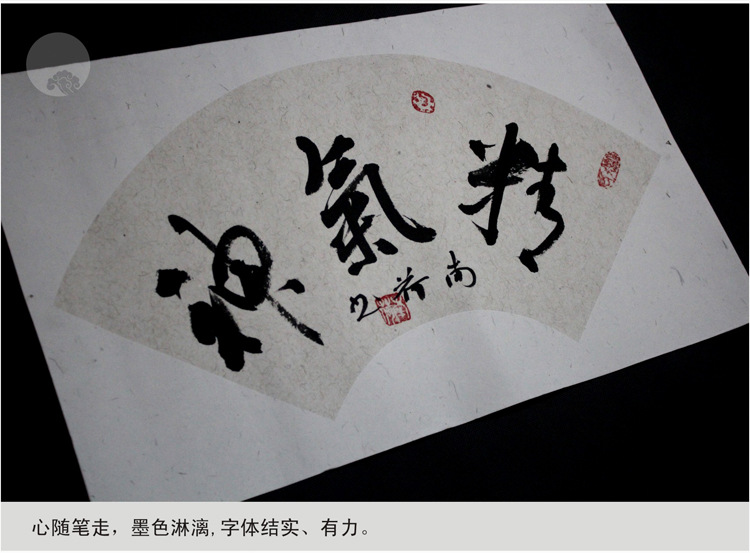 精氣神
尚
心随笔走，墨色淋漓,字体结实、有力。